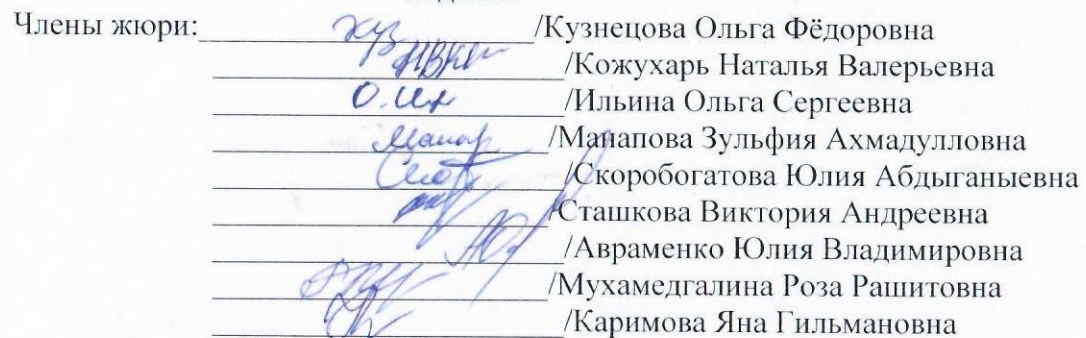 Члены жюри: /Кузнецова Ольга Фёдоровна
/Кожухарь Наталья Валерьевна
/Ильина Ольга Сергеевна
/Манапова Зульфия Ахмадулловна
/Скоробогатова Юлия Абдыганыевна
/Сташкова Виктория Андреевна
/Авраменко Юлия Владимировна
/Мухамедгалина Роза Рашитовна
/Каримова Яна Гильмановна